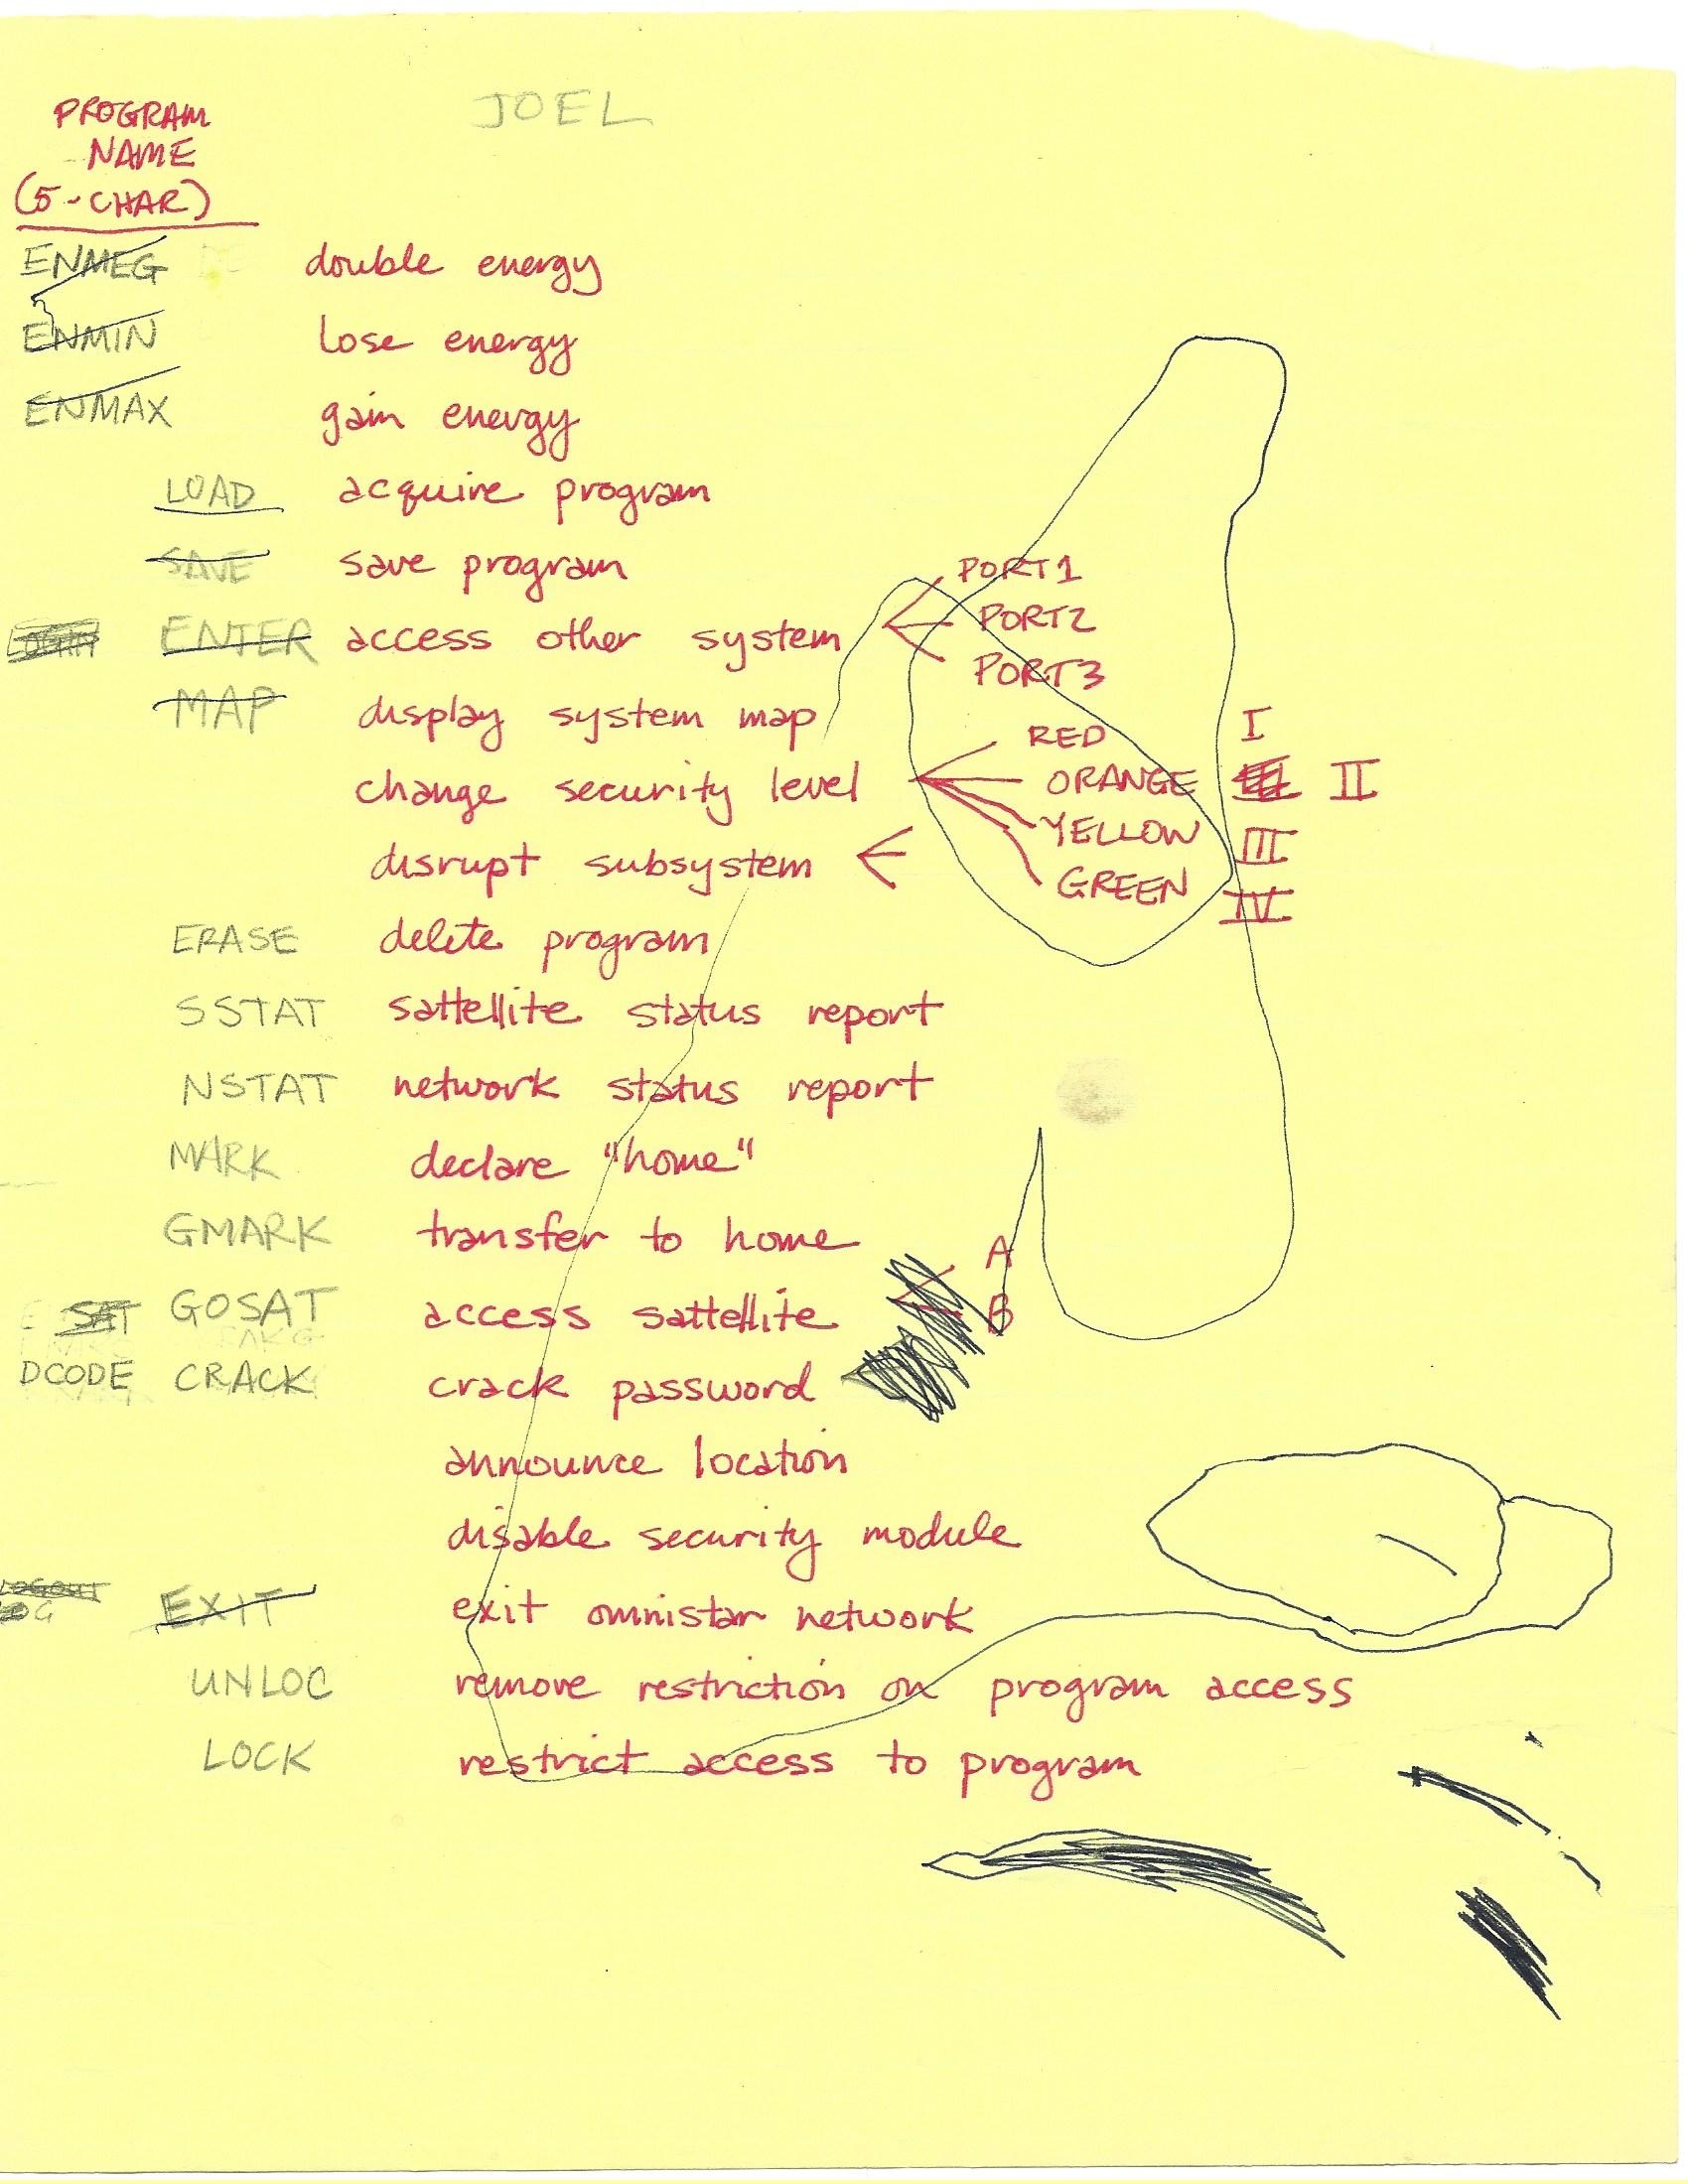 PROGRAM JOEL
NAME
(5-CHAR)
ENMEG double energy
ENMIN lose energy
ENMAX gain energy
LOAD acquire program
SAVE save program
PORT1
LOGIN ENTER access other system PORT2
PORT3
MAP display system map
RED I
change security level ORANGE II
YELLOW III
disrupt subsystem
GREEN IV
ERASE delete program
SSTAT sattellite status report
NSTAT network status report
MARK declare "home"
GMARK transfer to home
A
SAT GOSAT access sattellite B
DCODE CRACK crack password
announce location
disable security module
LOGOUT
EXIT exit omnistar network
UNLOC remove restriction on program access
LOCK restrict access to program